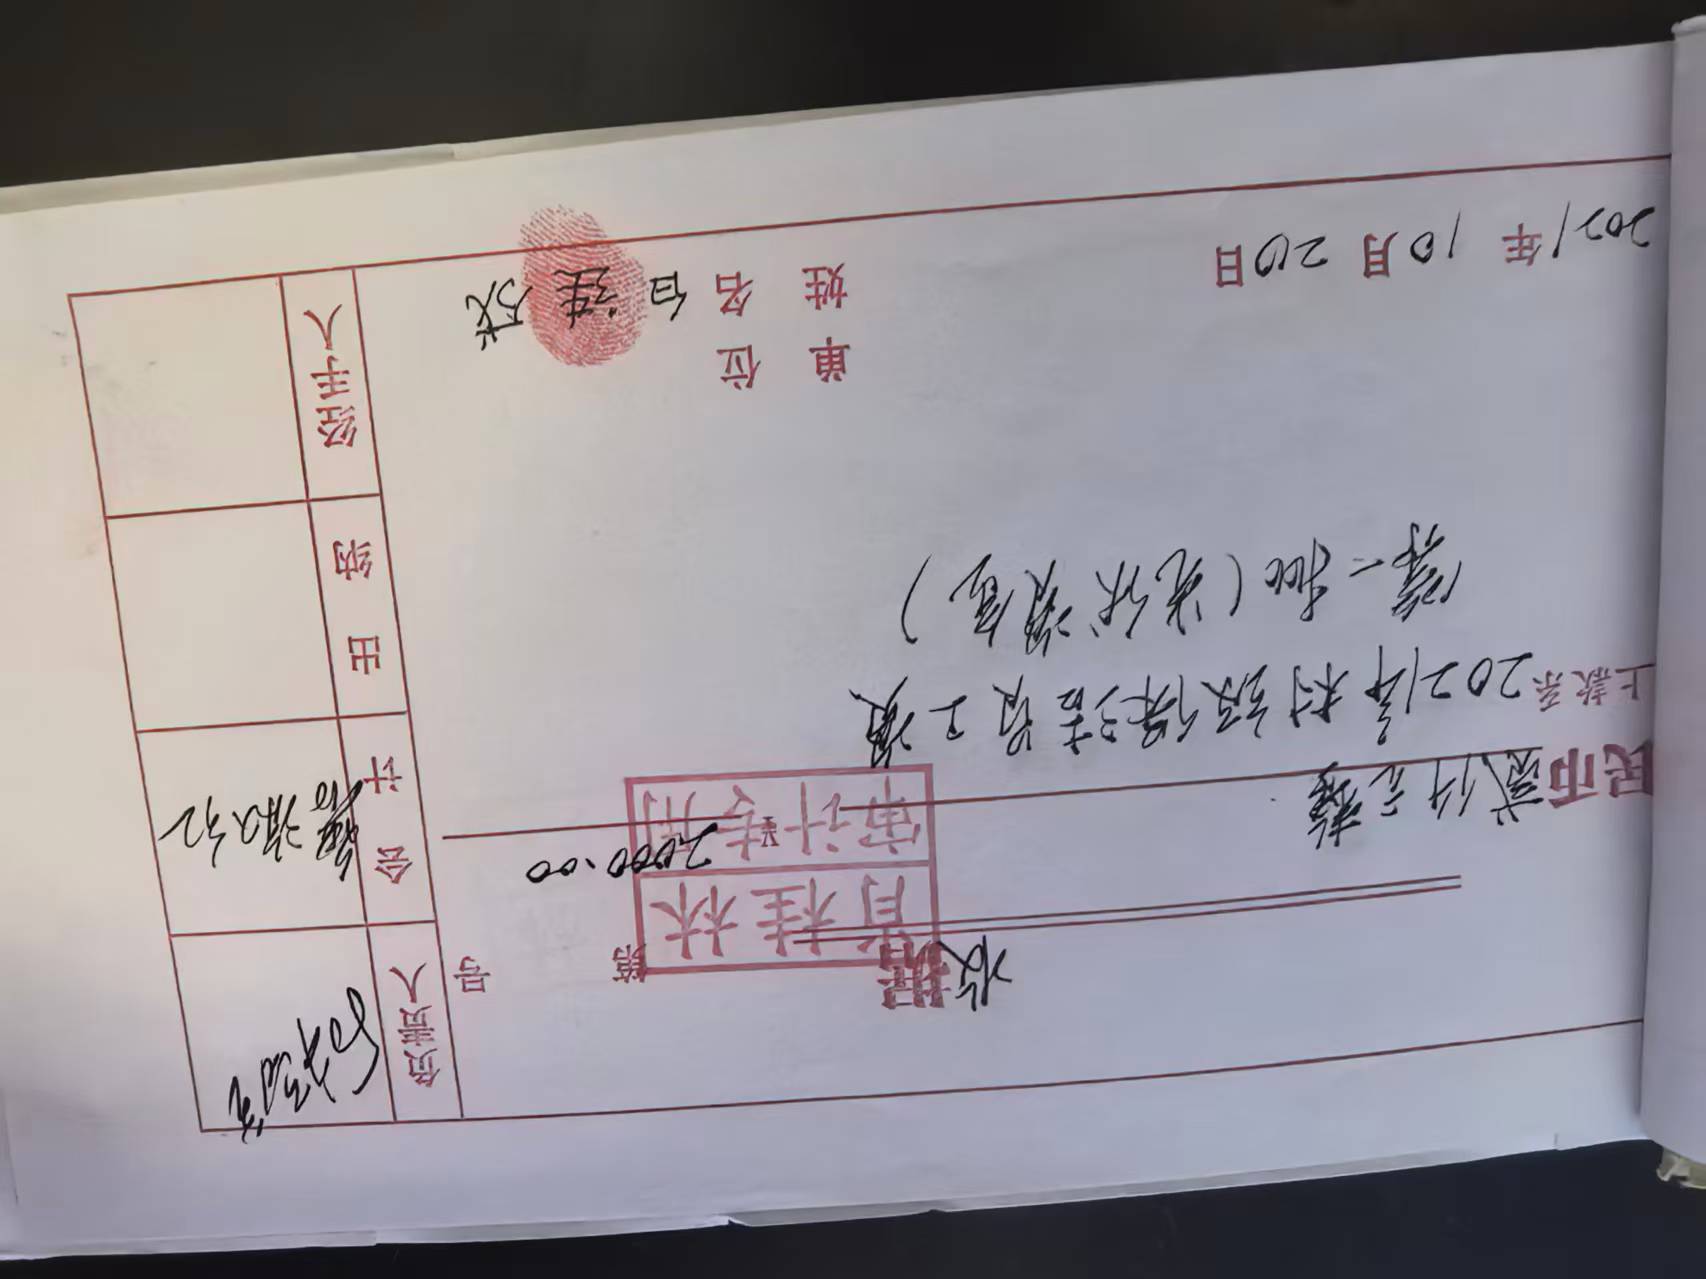 收据
第 号
肖桂林
审计专用
民币贰仟元整 ¥2000.00
上款系2021年村级保洁员工资
第一批(先从调资)
单 位
姓 名 白 成
2021年10月20日
负责人
会计
出纳
经手人